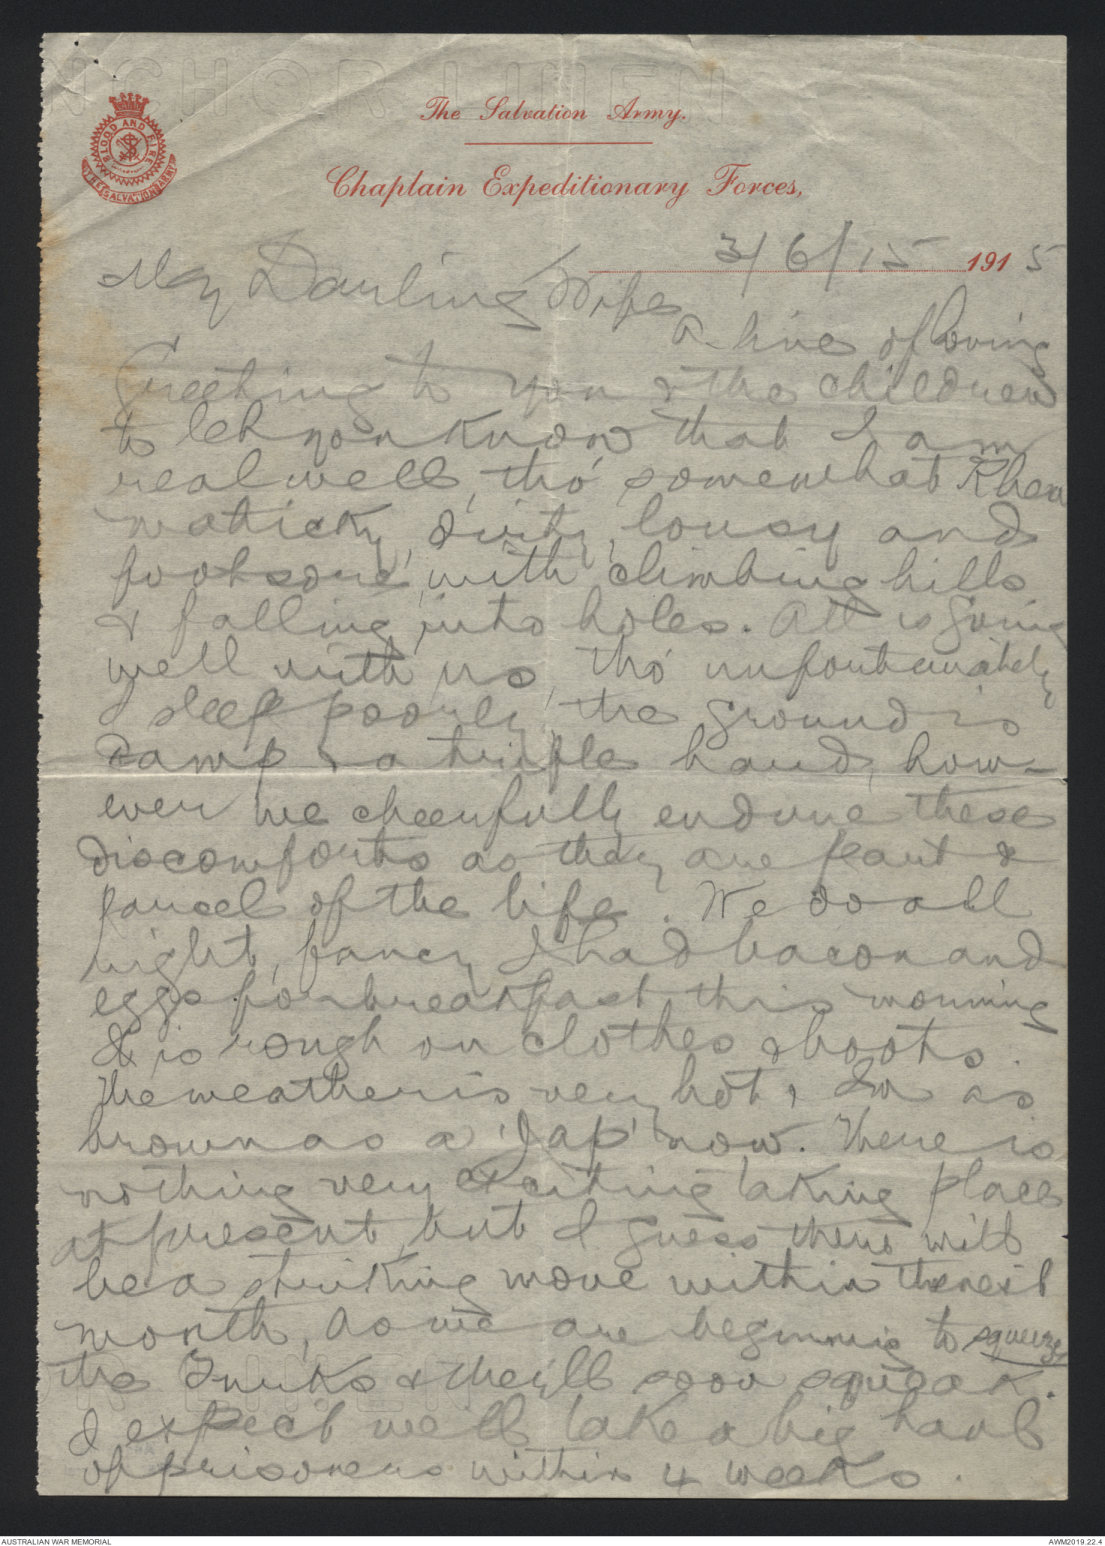 ANCHOR LINEN
BLOOD AND FIRE
THE SALVATION ARMY
The Salvation Army.
Chaplain Expeditionary Forces,
3/6/15 1915
My Darling Wife
A line of loving
Greeting to you & the children
to let you know that I am
real well, tho' somewhat Rheu
maticky, dirty, lousy and
footsore, with climbing hills
& falling into holes. All is going
well with us, tho' unfortunately
I sleep poorly, the ground is
damp & a trifle hard, how-
ever we cheerfully endure these
discomforts as they are part &
parcel of the life. We do all
right, fancy I had bacon and
eggs for breakfast this morning
It is rough on clothes & boots.
The weather is very hot, I'm as
brown as a 'Jap' now. There is
nothing very exciting taking place
at present, but I guess there will
be a striking move within the next
month, as we are beginning to squeeze
the Turks & they'll soon squeak.
I expect we'll take a big haul
of prisoners within 4 weeks.
AUSTRALIAN WAR MEMORIAL
AWM2019.22.4